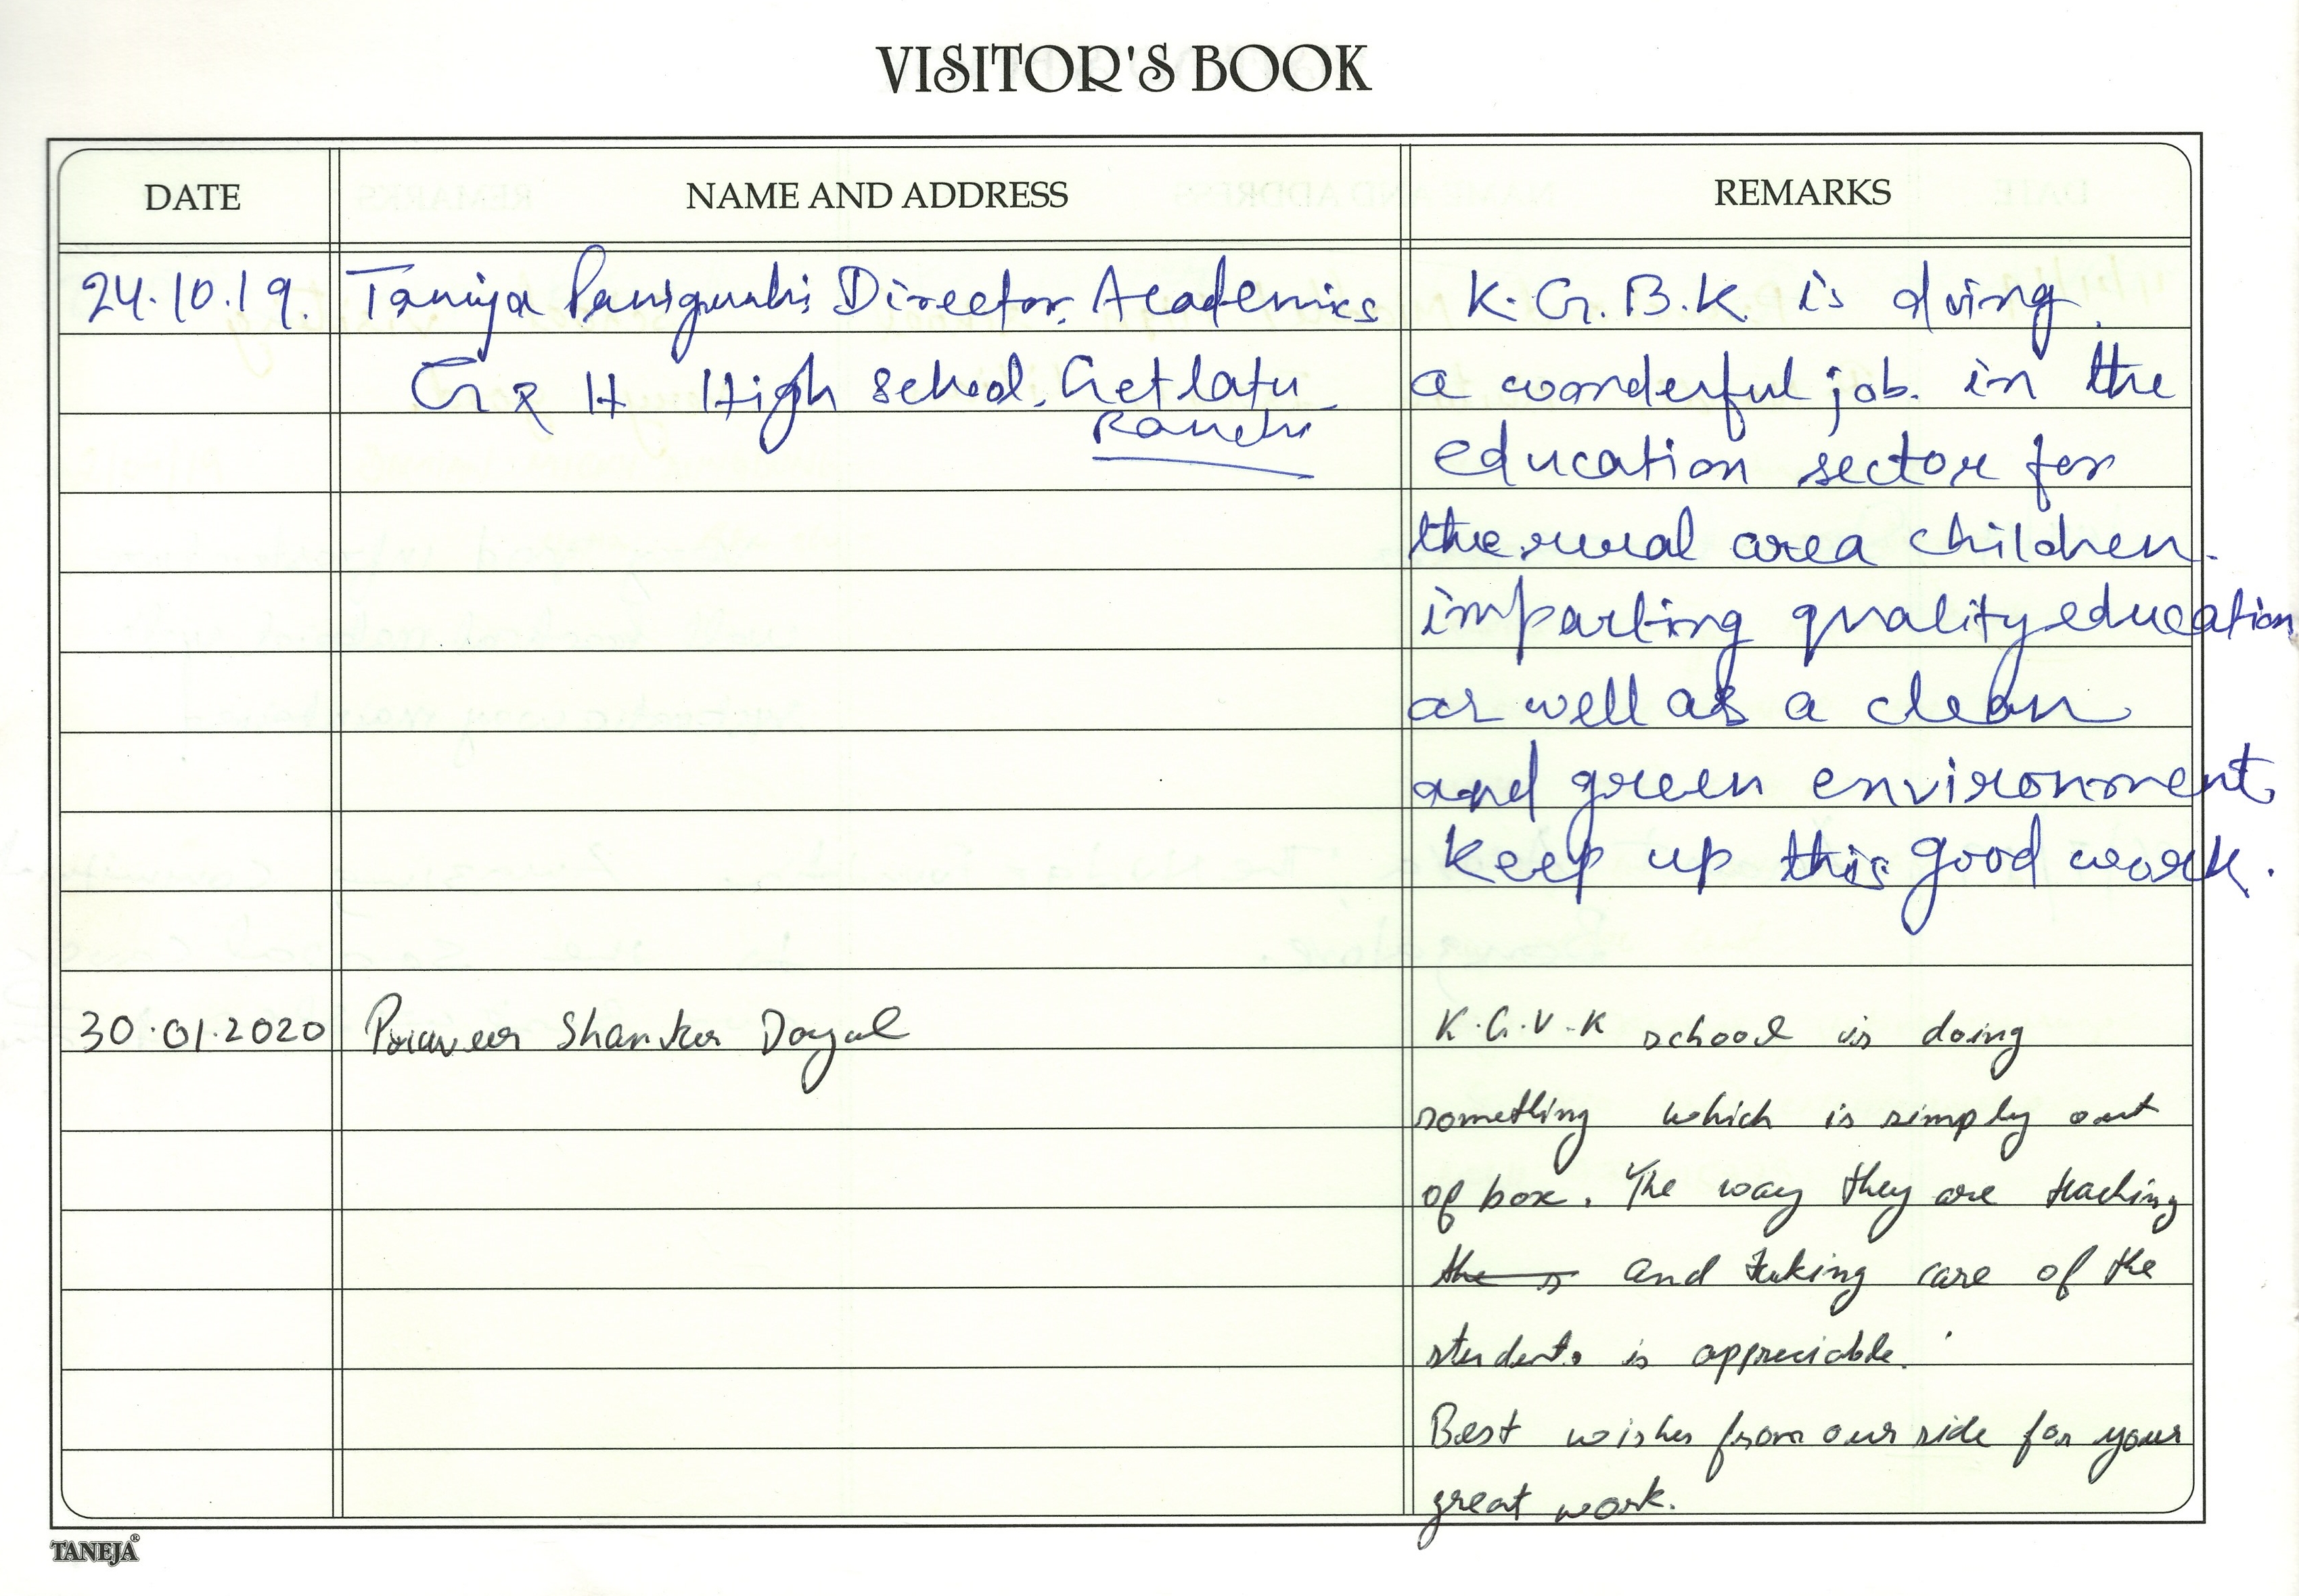 VISITOR'S BOOK
DATE NAME AND ADDRESS REMARKS
24.10.19. Taniya Panigrahi Director, Academics K.G.B.K. is doing
G & H High School, Getlatu a wonderful job. in the
Ranchi
education sector for
the rural area children.
imparting quality education
as well as a clean
and green environment,
Keep up this good work.
30.01.2020 Praveer Shanker Dayal K.G.V.K school is doing
something which is simply out
of box. The way they are teaching
the s and taking care of the
students is appreciable.
Best wishes from our side for your
great work.
TANEJA®